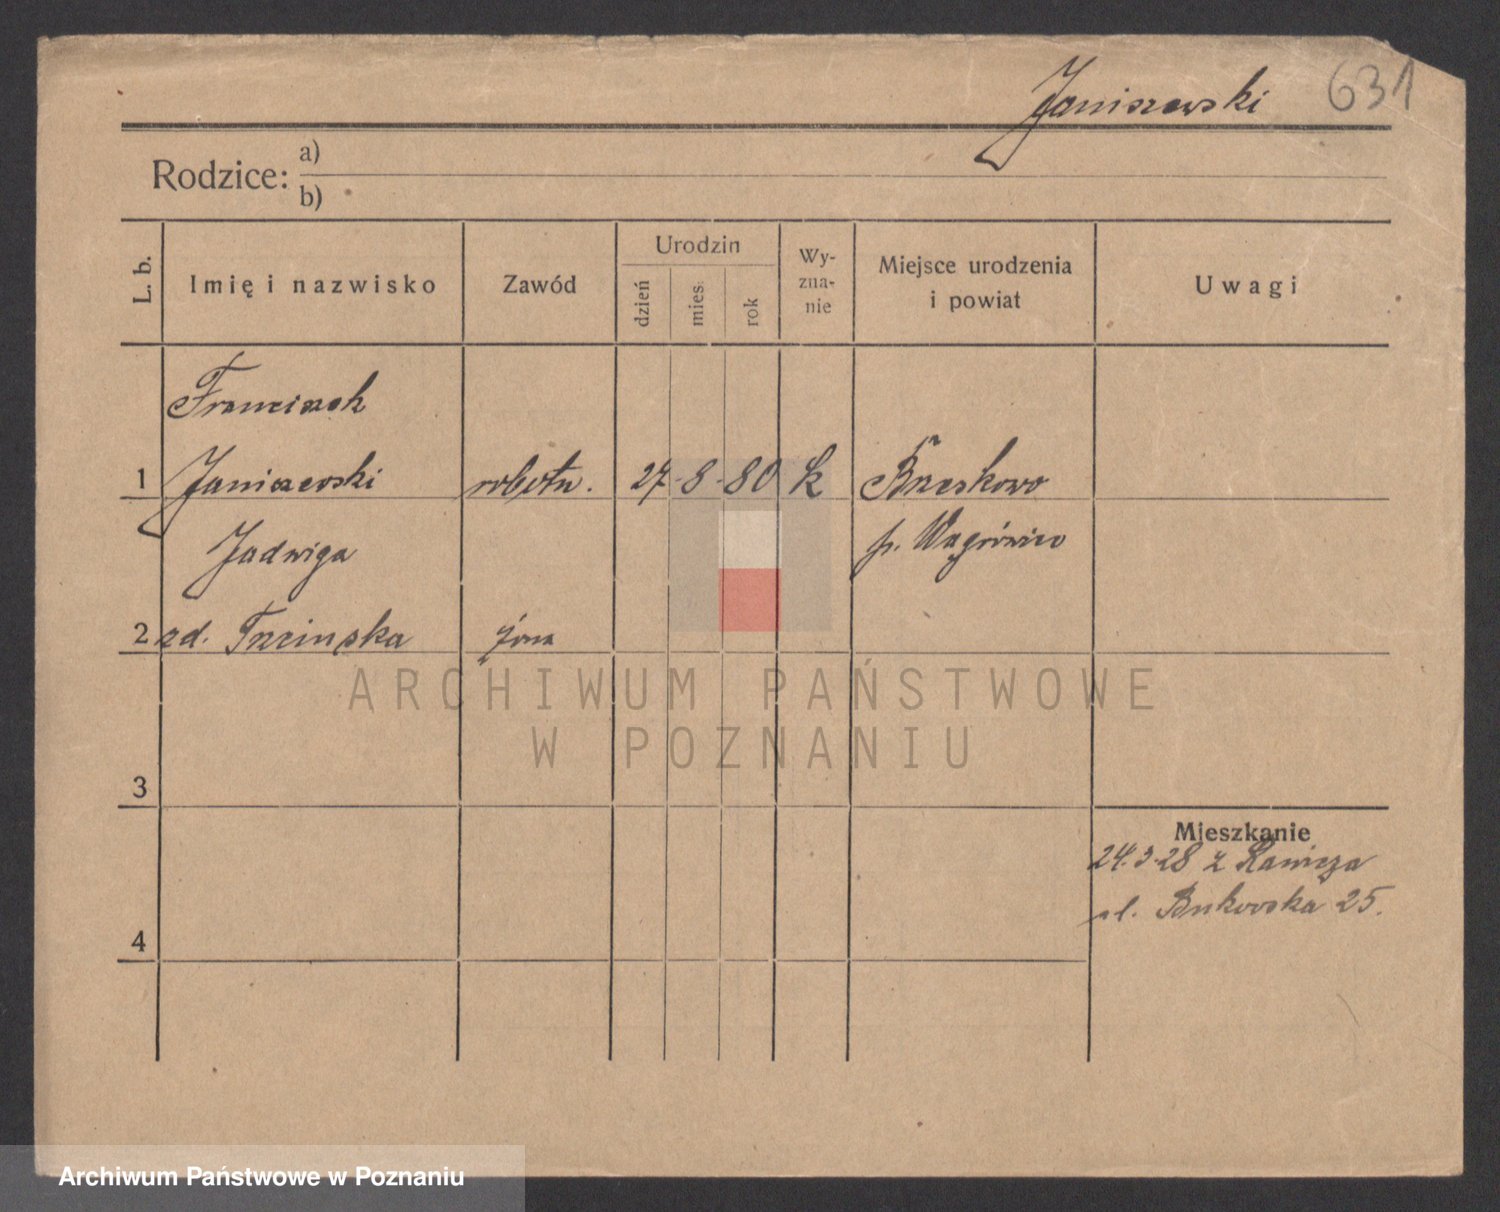 Janiszewski 631
Rodzice: a)
b)
L. b.
Imię i nazwisko
Zawód
Urodzin
dzień
mies.
rok
Wy-
zna-
nie
Miejsce urodzenia
i powiat
Uwagi
Franciszek
1 Janiszewski robotn. 27-8-80 k
Jadwiga p. Wągrówiec
2 zd. żona
3
4
Mieszkanie
24.3.28 z Rawicza
ul. Bukowska 25.
ARCHIWUM PAŃSTWOWE
W POZNANIU
Archiwum Państwowe w Poznaniu